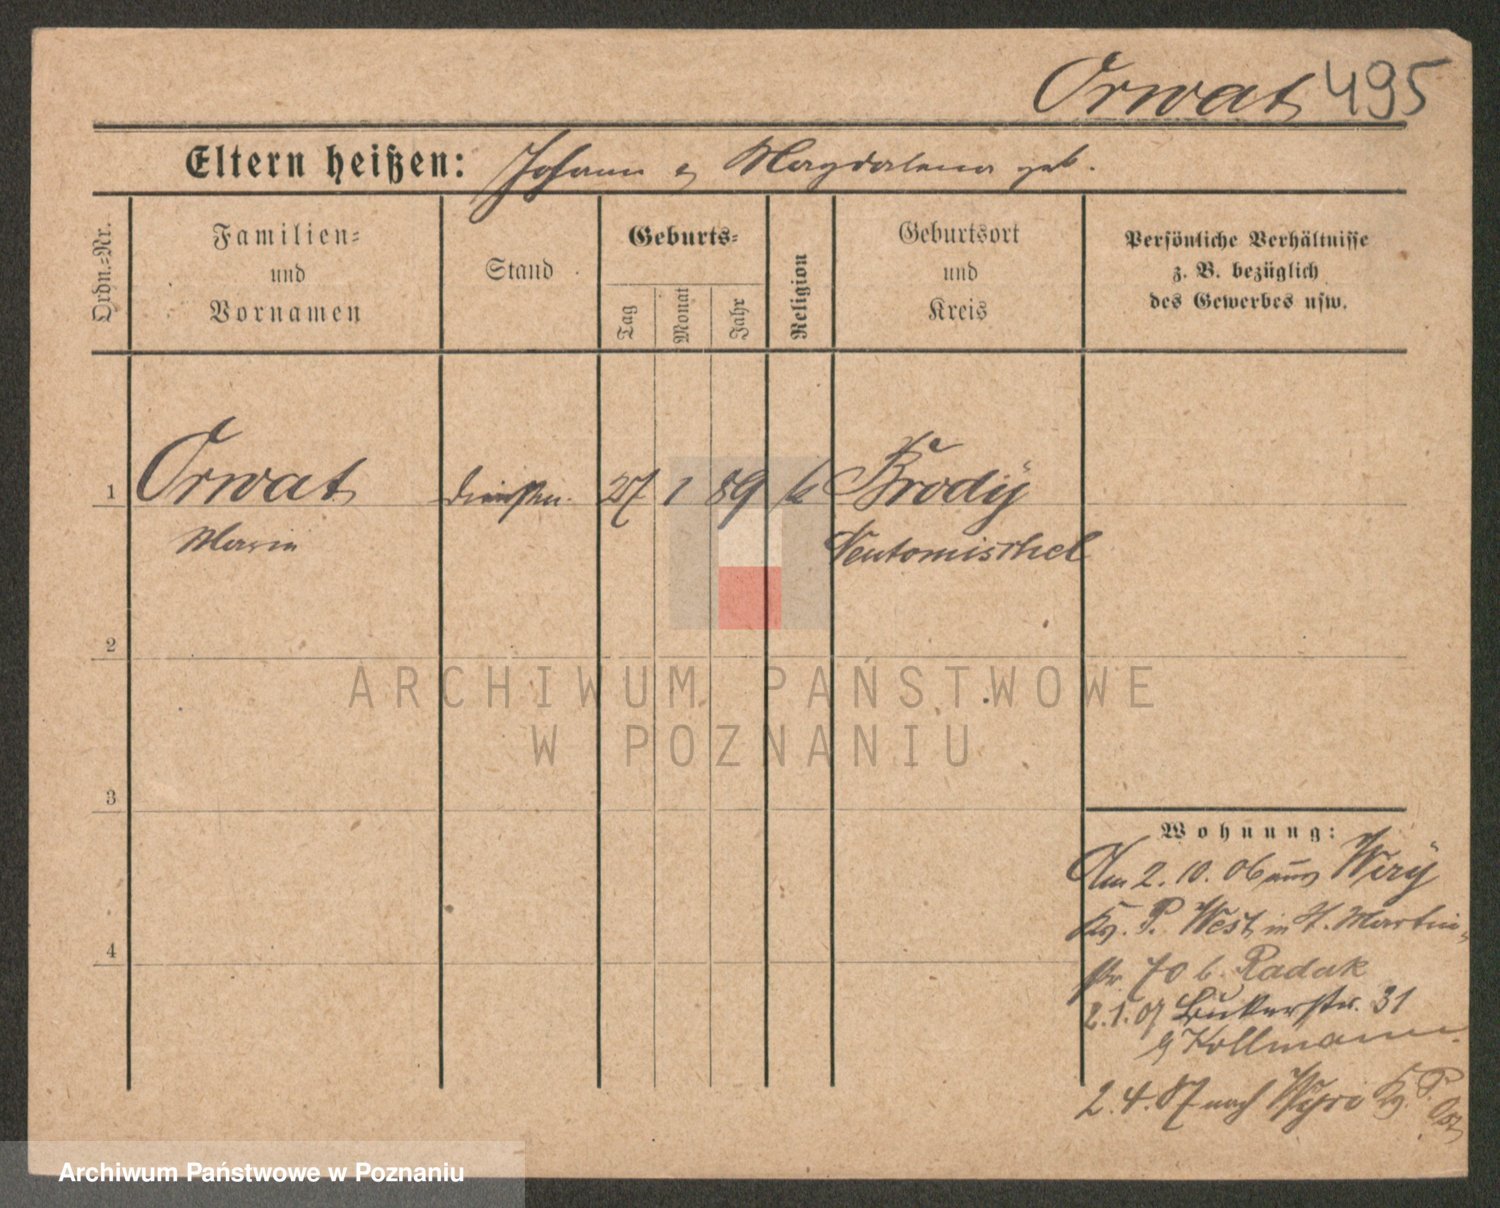 Orwat 495
Eltern heißen: Johann & Magdalena geb.
Ordn.-Nr.
Familien-
und
Vornamen
Stand
Geburts-
Tag
Monat
Jahr
Religion
Geburtsort
und
Kreis
Persönliche Verhältnisse
z. B. bezüglich
des Gewerbes usw.
1 Orwat 27 1 89 k Brody
Maria Neutomischel
2
ARCHIWUM PAŃSTWOWE
W POZNANIU
3
Wohnung:
Am 2. 10. 06 aus Wiry
Kr. P. West in St. Martin-
str. 70 b. Radak
2.1.07 Bukerstr. 31
Kollmann
4
2.4.07 nach Kr. P. Ost
Archiwum Państwowe w Poznaniu